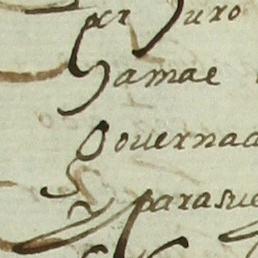 per Juro
hamae
Gouernad
y parasue